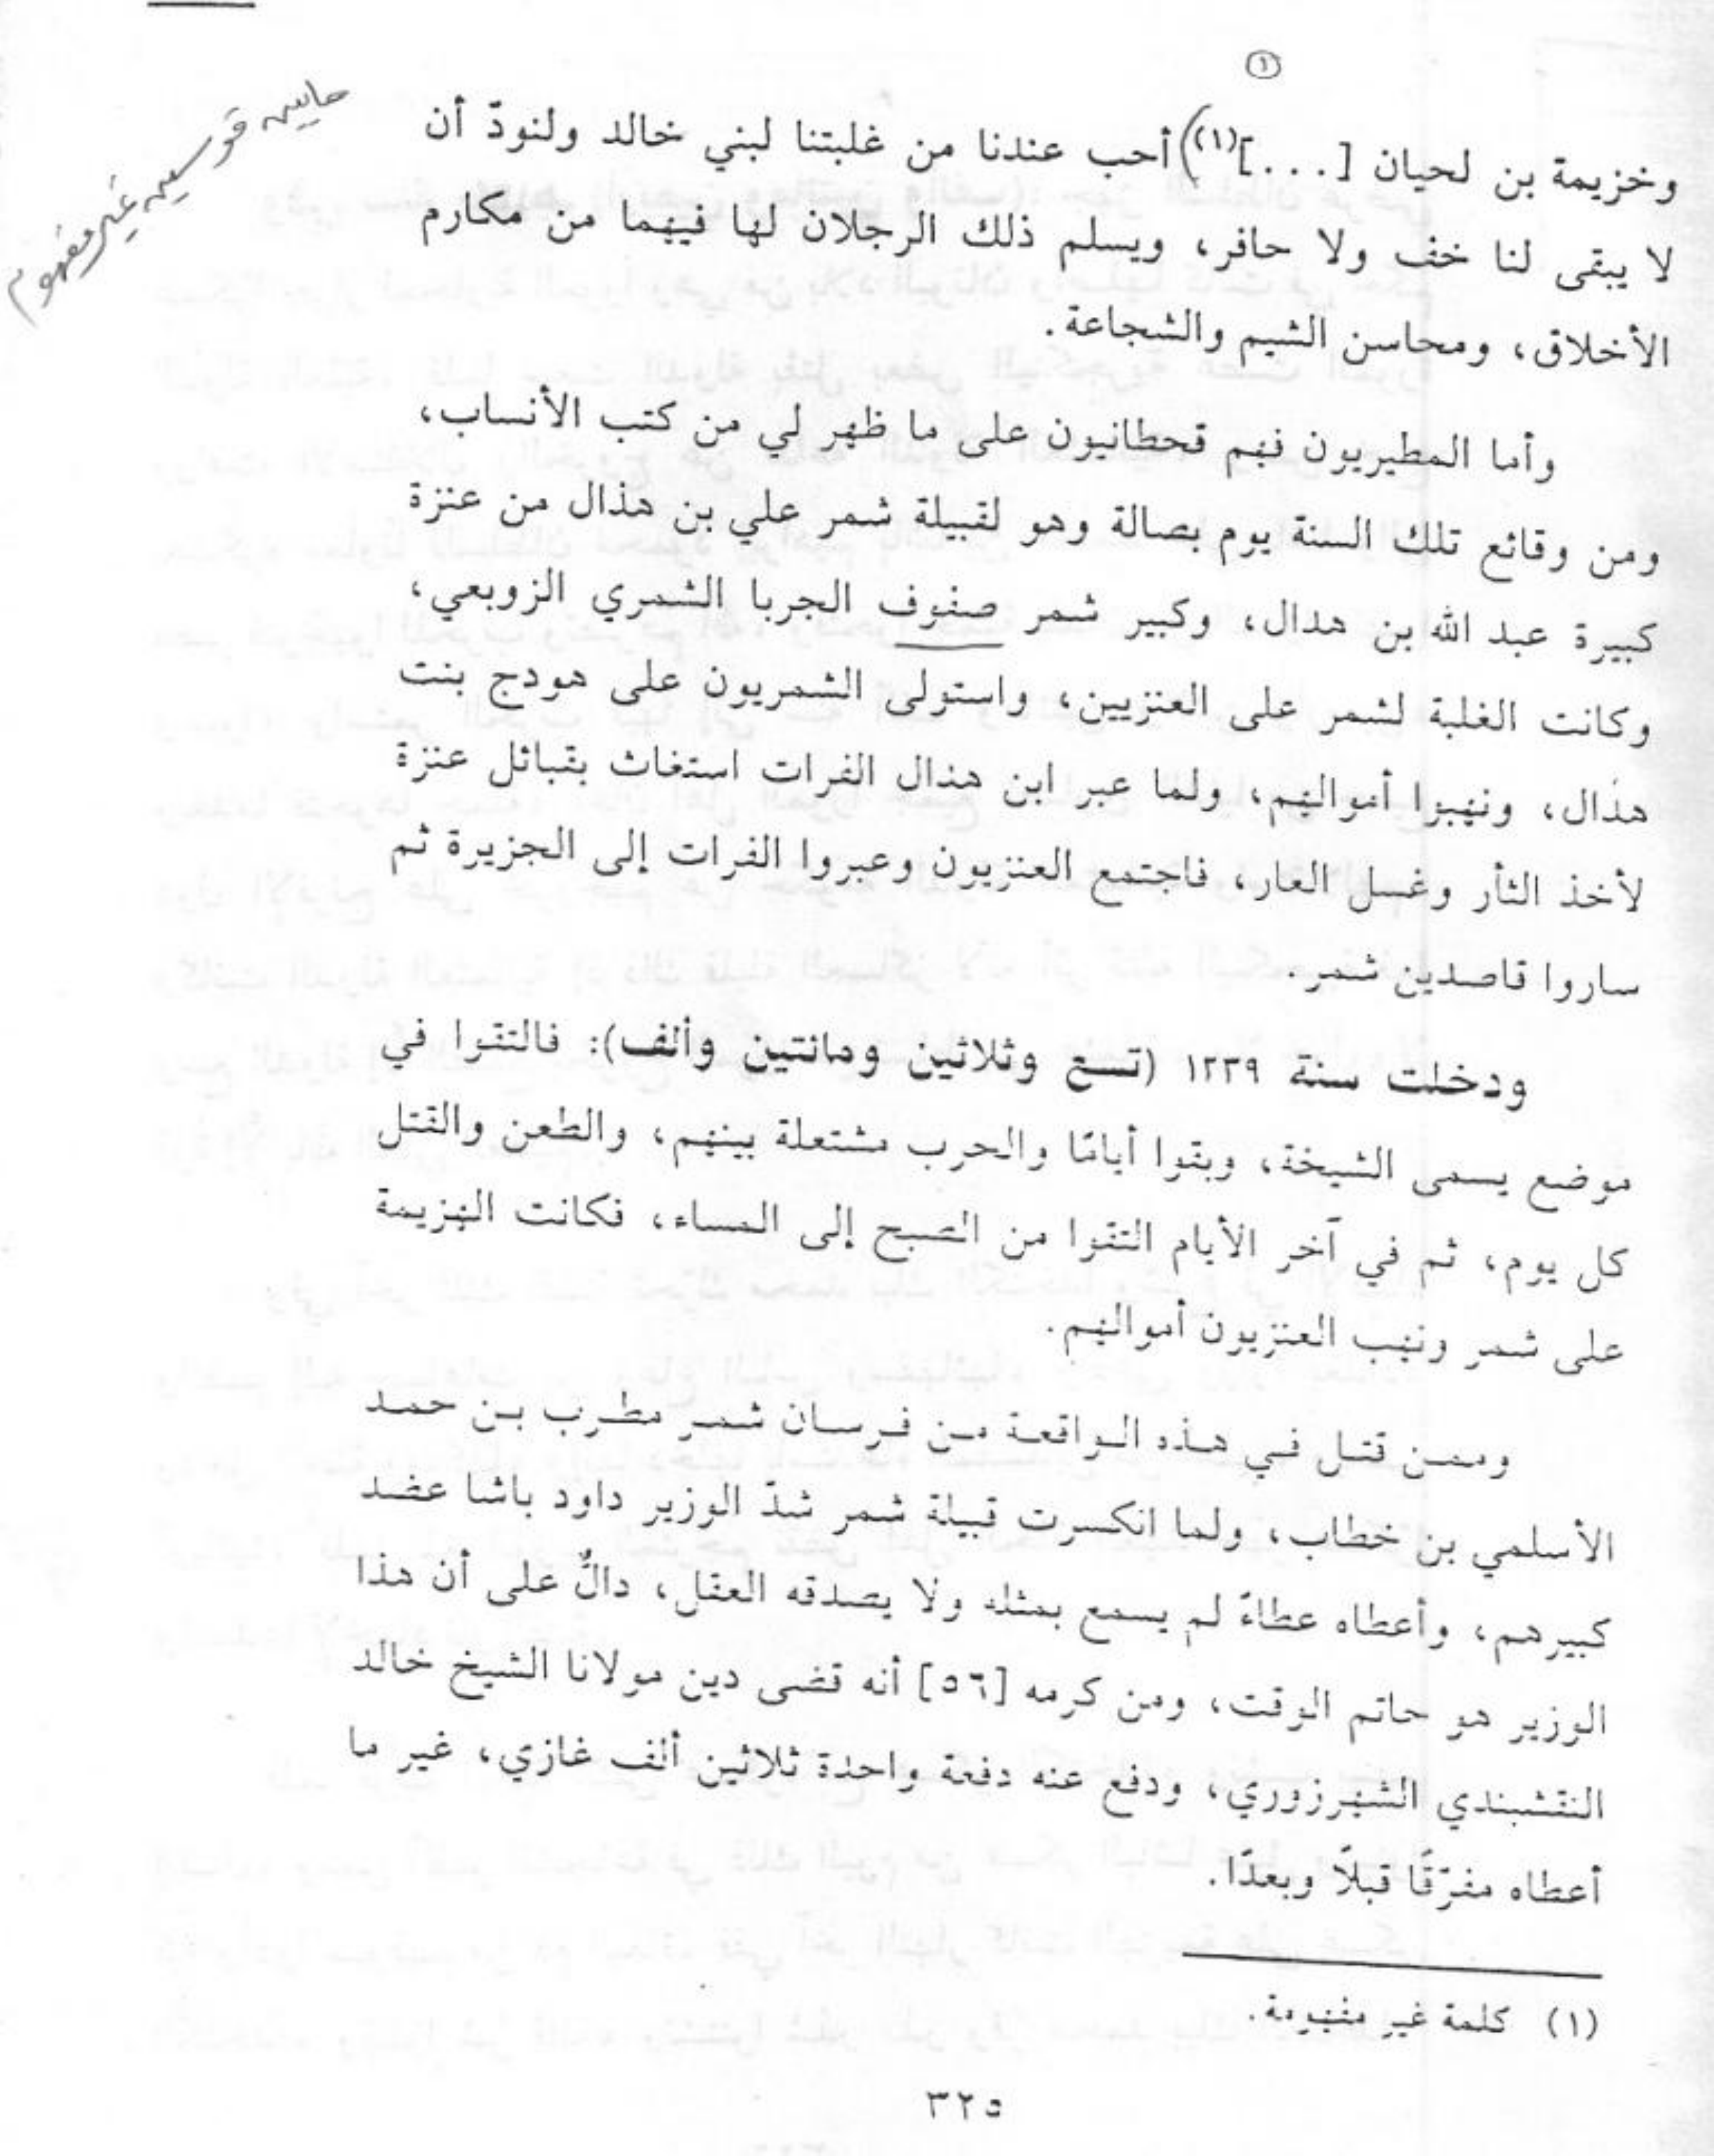 (١)
وخزيمة بن لحيان [...](١)) أحب عندنا من غلبتنا لبني خالد ولنودّ أن
ما بين قوسين غير مفهوم
لا يبقى لنا خف ولا حافر، ويسلم ذلك الرجلان لها فيهما من مكارم
الأخلاق، ومحاسن الشيم والشجاعة.
وأما المطيريون فهم قحطانيون على ما ظهر لي من كتب الأنساب،
ومن وقائع تلك السنة يوم بصالة وهو لقبيلة شمر علي بن هذال من عنزة
كبيرة عبد الله بن هدال، وكبير شمر صفوف الجربا الشمري الزوبعي،
وكانت الغلبة لشمر على العنزيين، واستولى الشمريون على هودج بنت
هذال، ونهبوا أموالهم، ولما عبر ابن هذال الفرات استغاث بقبائل عنزة
لأخذ الثأر وغسل العار، فاجتمع العنزيون وعبروا الفرات إلى الجزيرة ثم
ساروا قاصدين شمر.
ودخلت سنة ١٢٣٩ (تسع وثلاثين ومائتين وألف): فالتقوا في
موضع يسمى الشيخة، وبقوا أيامًا والحرب مشتعلة بينهم، والطعن والقتل
كل يوم، ثم في آخر الأيام التقوا من الصبح إلى المساء، فكانت الهزيمة
على شمر ونهب العنزيون أموالهم.
وممن قتل في هذه الواقعة من فرسان شمر مطرب بن حمد
الأسلمي بن خطاب، ولما انكسرت قبيلة شمر شدّ الوزير داود باشا عضد
كبيرهم، وأعطاه عطاءً لم يسمع بمثله ولا يصدقه العقل، دالٌّ على أن هذا
الوزير هو حاتم الوقت، ومن كرمه [٥٦] أنه قضى دين مولانا الشيخ خالد
النقشبندي الشهرزوري، ودفع عنه دفعة واحدة ثلاثين ألف غازي، غير ما
أعطاه مفرّقًا قبلاً وبعدًا.
(١) كلمة غير مفهومة.
٣٢٥